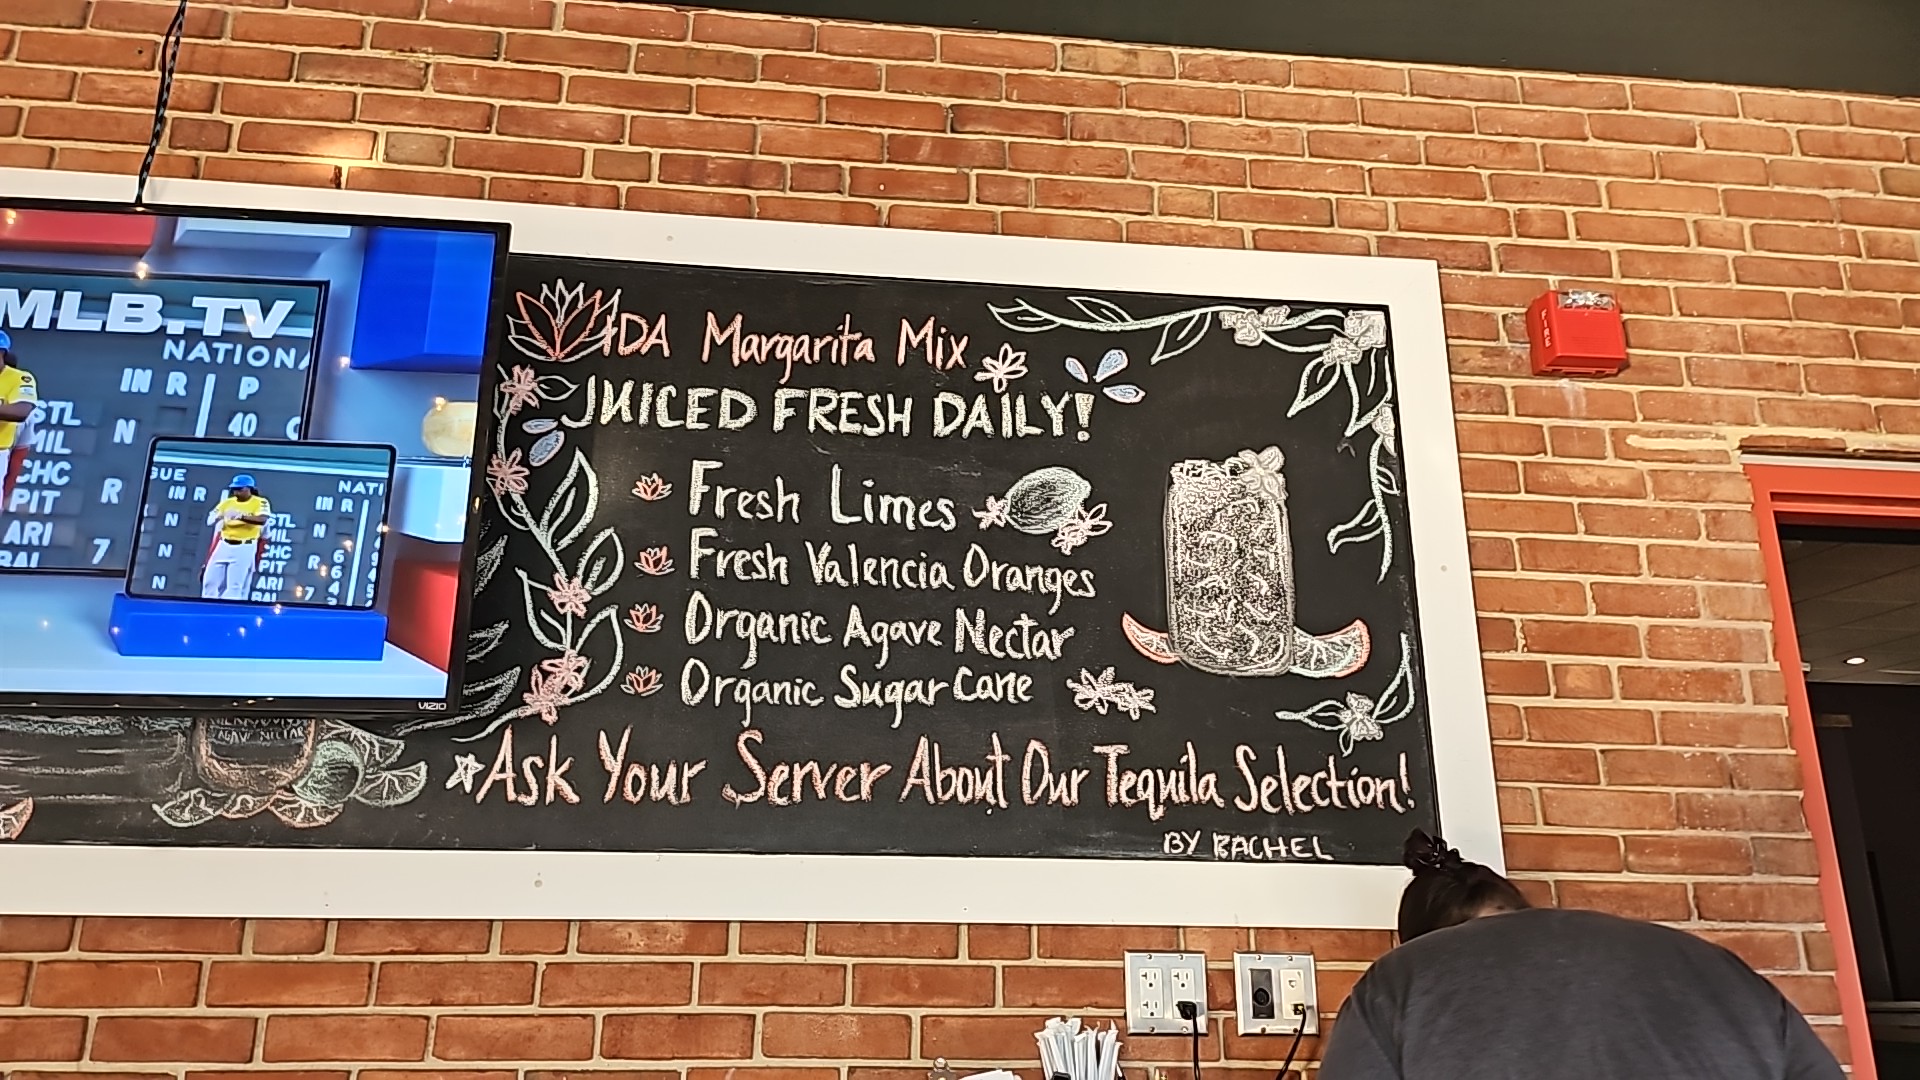 MLB.TV
NATIONA
IN R P
STL
MIL N 40
CHC
PIT R
ARI
BAL 7
GUE NATI
IN R IN R
N STL N
MIL
CHC 6
N PIT R
ARI
N BAL 7
VIZIO
AGAVE NECTAR
IDA Margarita Mix
JUICED FRESH DAILY!
Fresh Limes
Fresh Valencia Oranges
Organic Agave Nectar
Organic Sugar Cane
Ask Your Server About Our Tequila Selection!
BY RACHEL
FIRE